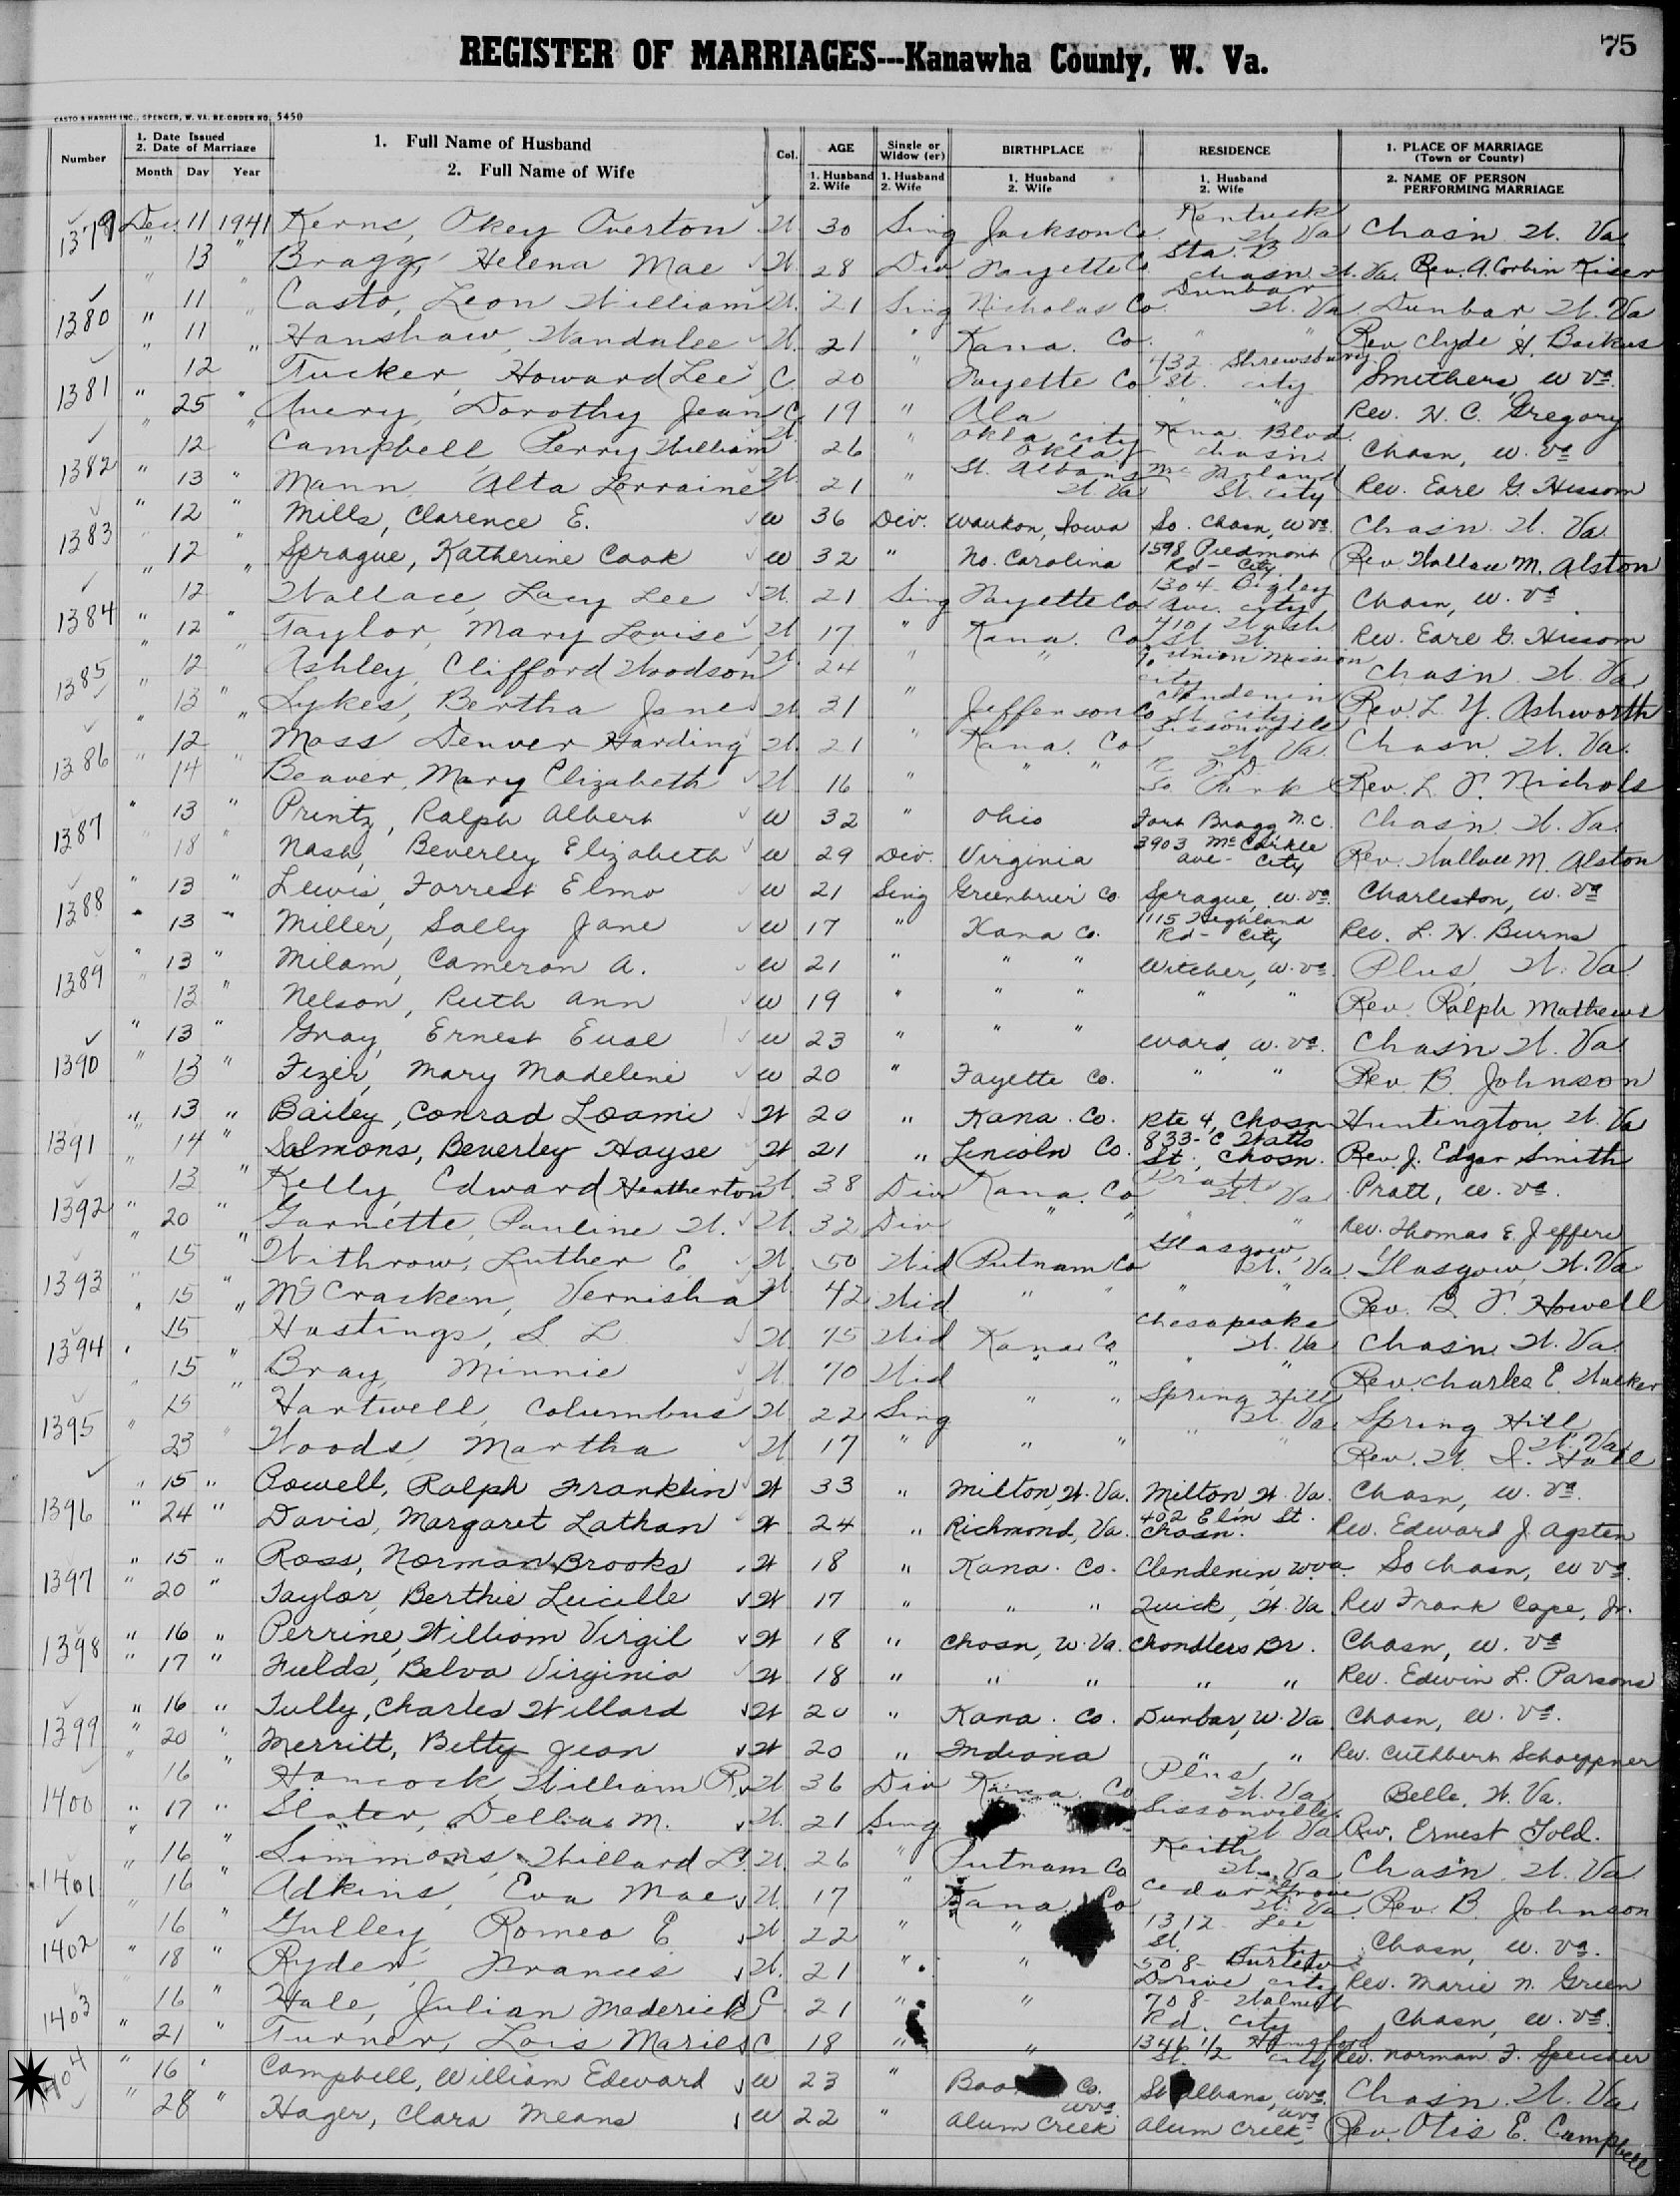 75
REGISTER OF MARRIAGES---Kanawha County, W. Va.
CASTO & HARRIS INC., SPENCER, W. VA. RE-ORDER NO. 5450
Number | 1. Date Issued 2. Date of Marriage Month Day Year | 1. Full Name of Husband 2. Full Name of Wife | Col. | AGE 1. Husband 2. Wife | Single or Widow (er) 1. Husband 2. Wife | BIRTHPLACE 1. Husband 2. Wife | RESIDENCE 1. Husband 2. Wife | 1. PLACE OF MARRIAGE (Town or County) 2. NAME OF PERSON PERFORMING MARRIAGE
1379 Dec. 11 1941 Kerns, Okey Overton W. 30 Sing Jackson Co. Kentuck W. Va Chas'n W. Va
" 13 " Bragg, Helena Mae W. 28 Div Fayette Co. Sta. B Chasn W. Va. Rev. A. Corbin Kiser
1380 " 11 " Casto, Leon William W. 21 Sing Nicholas Co. Dunbar W. Va. Dunbar W. Va
" 11 " Hanshaw, Wandalee W. 21 " Kana. Co. " " Rev Clyde H. Backus
1381 " 12 " Tucker, Howard Lee C 20 " Fayette Co 432 Shrewsbury St. city Smithers, W Va.
" 25 " Avery, Dorothy Jean C. 19 " Ala " " Rev. H. C. Gregory
1382 " 12 " Campbell, Perry William W. 26 " Okla city Okla Kana. Blvd. Chasn. Chasn, W. Va
" 13 " Mann, Alta Lorraine W. 21 " St. Albans W. Va St. city Rev. Earl G. Hissom
1383 " 12 " Mills, Clarence E. W 36 Div. Waukon, Iowa So. Chasn, W Va. Chas'n. W. Va.
" 12 " Sprague, Katherine Cook W 32 " No. Carolina 1598 Piedmont Rd - City Rev. Wallace M. Alston
1384 " 12 " Wallace, Lacy Lee W. 21 Sing Fayette Co 1304 Bigley Ave. city Chasn, W. Va.
" 12 " Taylor, Mary Louise W 17 " Kana. Co. 410 Wash St. W Rev. Earl G. Hissom
1385 " 12 " Ashley, Clifford Woodson W. 24 " " Union Mission city Chas'n W. Va.
" 13 " Sykes, Bertha Jane W. 31 " Jefferson Co Clendenin St. city Rev. L. Y. Ashworth
1386 " 12 " Moss, Denver Harding W. 21 " Kana. Co Sissonville W. Va. Chasn. W. Va.
" 14 " Beaver, Mary Elizabeth W 16 " " " So Park Rev. L. F. Nichols
1387 " 13 " Printz, Ralph Albert W 32 " Ohio Fort Bragg, N.C. Chas'n. W. Va.
" 18 " Nash, Beverley Elizabeth W 29 Div. Virginia 3903 McCorkle Ave- City Rev. Wallace M. Alston
1388 " 13 " Lewis, Forrest Elmo W 21 Sing Greenbrier Co. Sprague, W. Va. Charleston, W. Va
" 13 " Miller, Sally Jane W 17 " Kana Co. 1115 Highland Rd- City Rev. L. H. Burns
1389 " 13 " Milam, Cameron A. W 21 " " " Witcher, W. Va. Plus, W. Va.
" 13 " Nelson, Ruth Ann W 19 " " " " " Rev. Ralph Mathews
1390 " 13 " Gray, Ernest Eual W 23 " " " Ward, W. Va. Chas'n W. Va.
" 13 " Fizer, Mary Madeline W 20 " Fayette Co. " " Rev. B. Johnson
1391 " 13 " Bailey, Conrad Loami W 20 " Kana. Co. Rte 4, Chasn Huntington, W. Va
" 14 " Salmons, Beverley Hayse W 21 " Lincoln Co. 833-C Watts St., Chasn. Rev. J. Edgar Smith
1392 " 13 " Kelly, Edward Heatherton W. 38 Div Kana. Co. Pratt W. Va Pratt, W. Va.
" 20 " Garnette, Pauline W. W. 32 Div " " " " Rev. Thomas E. Jeffers
1393 " 15 " Withrow, Luther E. W. 50 Wid Putnam Co Glasgow, W. Va. Glasgow, W. Va
" 15 " McCracken, Vernisha W 42 Wid " " " " Rev. B. F. Howell
1394 " 15 " Hastings, S. L. W. 75 Wid Kana Co Chesapeake W. Va Chasn. W. Va.
" 15 " Bray, Minnie W. 70 Wid " " " " Rev. Charles E. Walker
1395 " 15 " Hartwell, Columbus W 22 Sing " " Spring Hill W. Va Spring Hill W. Va.
" 23 " Woods, Martha W 17 " " " " " Rev. W. I. Hall
1396 " 15 " Powell, Ralph Franklin W 33 " Milton, W. Va. Milton, W. Va. Chasn, W. Va.
" 24 " Davis, Margaret Lathan W 24 " Richmond, Va. 402 Elm St. Chasn. Rev. Edward J. Agsten
1397 " 15 " Ross, Norman Brooks W 18 " Kana. Co. Clendenin, W Va So Chasn, W Va.
" 20 " Taylor, Berthie Lucille W 17 " " " Quick, W. Va Rev Frank Cape, Jr.
1398 " 16 " Perrine, William Virgil W 18 " Chasn, W. Va. Chandlers Br. Chasn, W. Va
" 17 " Fields, Belva Virginia W 18 " " " " " Rev. Edwin L. Parsons
1399 " 16 " Tully, Charles Willard W 20 " Kana. Co. Dunbar, W. Va Chasn, W. Va.
" 20 " Merritt, Betty Jean W 20 " Indiana " " Rev. Cuthbert Schoeppner
1400 " 16 " Hancock, William R. W 36 Div Kana. Co Plus W. Va. Belle, W. Va.
" 17 " Slater, Dellia M. W. 21 Sing Sissonville W. Va Rev. Ernest Told.
1401 " 16 " Simmons, Willard L. W. 26 " Putnam Co Keith W. Va Chas'n. W. Va
" 16 " Adkins, Eva Mae W. 17 " Kana. Co Cedar Grove W. Va. Rev. B. Johnson
1402 " 16 " Gulley, Romeo E W 22 " " 1312- Lee St. city Chasn, W. Va.
" 18 " Ryder, Frances W. 21 " " 508- Drive city Rev. Marie N. Green
1403 " 16 " Hale, Julian Maderick C 21 " " 708- Walnut Rd. city Chasn, W. Va.
" 21 " Turner, Lois Marie C 18 " " 1346 1/2 St. city Rev. Norman F.
1404 " 16 " Campbell, William Edward W 23 " Co. St Albans, W Va. Chasn. W. Va
" 28 " Hager, Clara Means W 22 " Alum Creek W Va. Alum Creek, W Va Rev. Otis E. Campbell